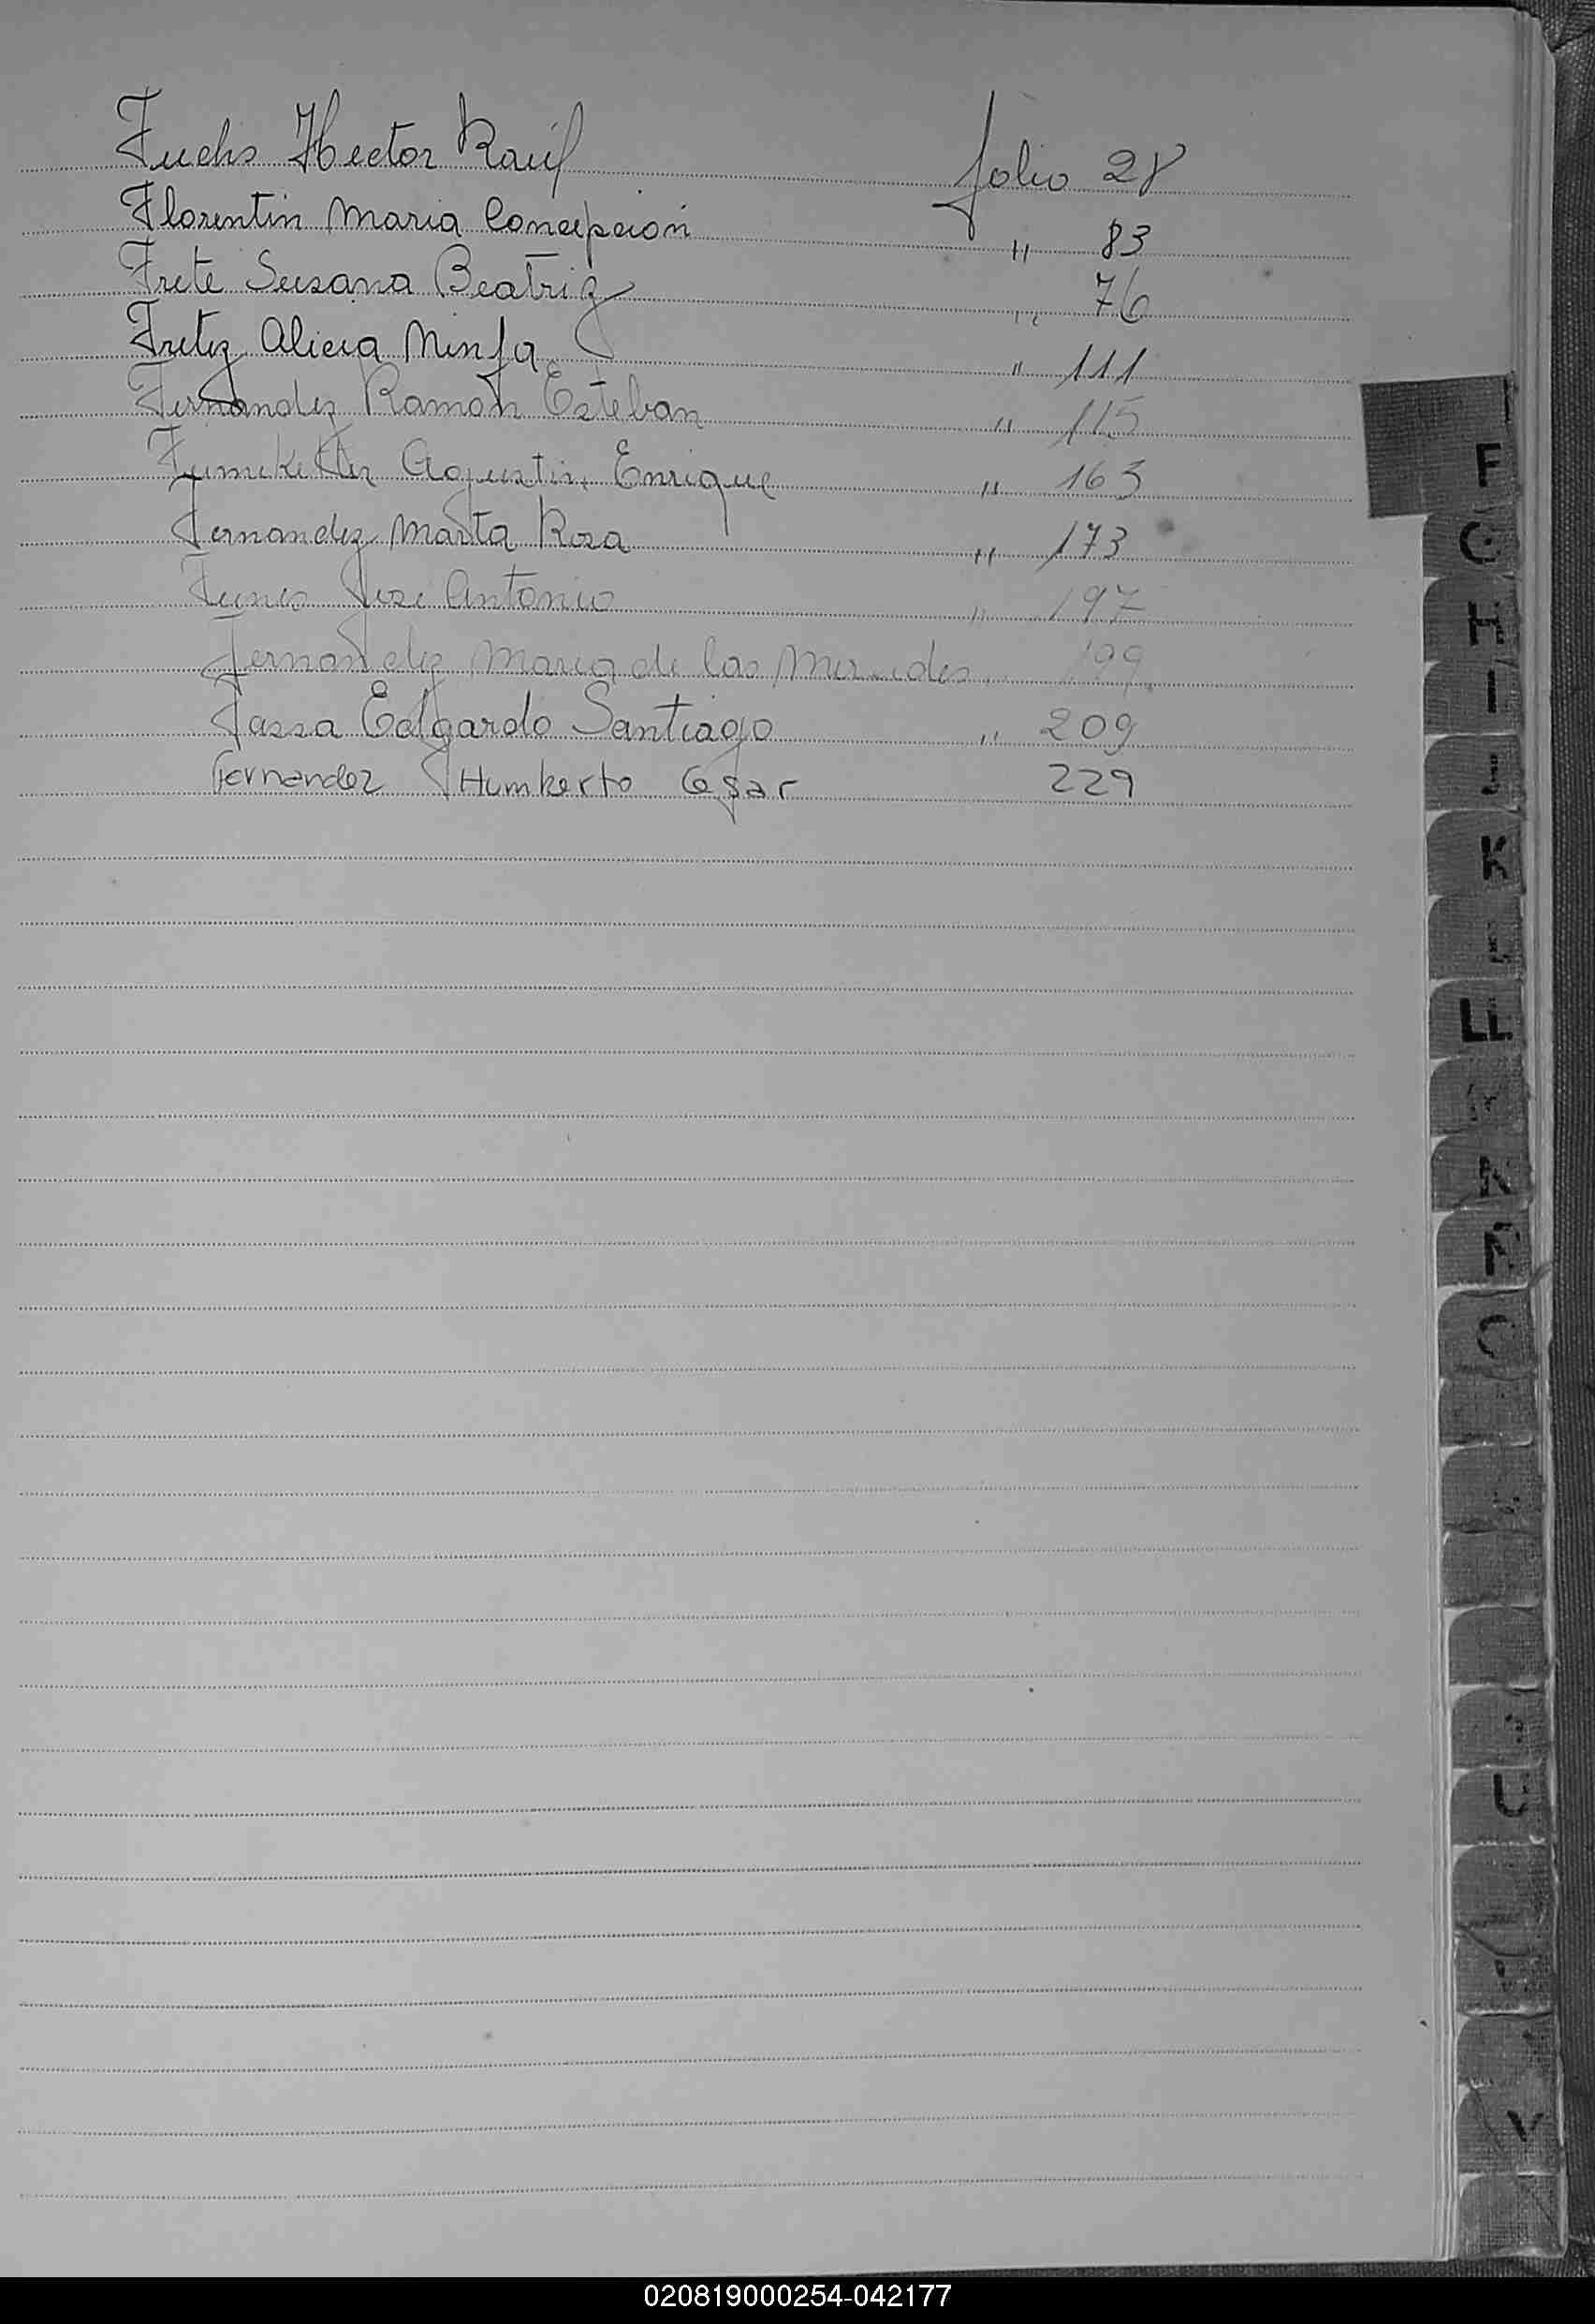 Fuchs Hector Raúl folio 28
Florentin Maria Concepción " 83
Frete Susana Beatriz " 76
Fretez Alicia Ninfa " 111
Fernandez Ramón Esteban " 115
Agustin Enrique " 163
Fernandez Marta Rosa " 173
Funes José Antonio " 197
Fernandez Maria de las Mercedes " 199
Fassa Edgardo Santiago " 209
Fernandez Humberto Cesar 229
F
G
H
I
K
LL
U
V
020819000254-042177